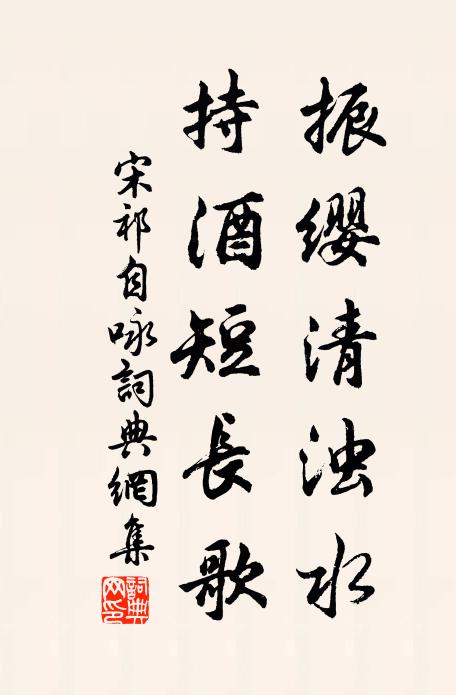 振缨清浊水
持酒短長歌
宋祁自咏詞典網集
詞典網印